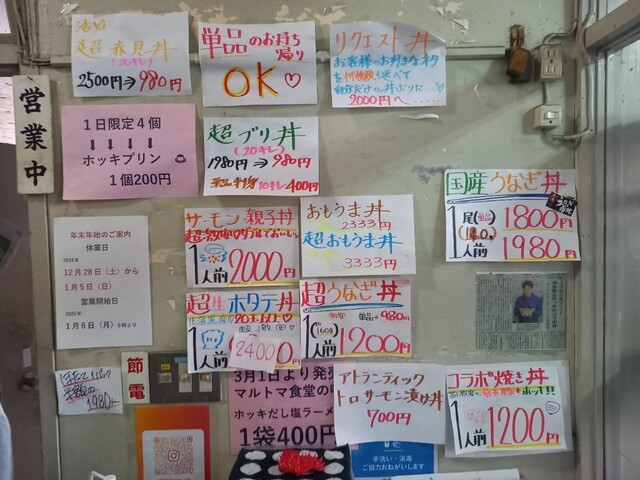 超 春貝丼
(20キレ)
2500円→980円
単品のお持ち
帰り
OK♡
リクエスト丼
お客様のお好きなネタ
を何種類も選べて
自分だけの丼ぶりに…
2000円〜……
営業中
1日限定4個
↓↓↓↓
ホッキプリン
1個200円
超ブリ丼
(20キレ)
1980円→980円
10キレ400円
国産うなぎ丼
1尾(単品)1800円
1人前 1980円
年末年始のご案内
休業日
12月28日(土)から
1月5日(日)
営業開始日
1月6日(月)5時より
サーモン親子丼
1人前 2000円
おもうま丼
2333円
超おもうま丼
3333円
超生ホタテ丼
1人前
24000
超うなぎ丼
単品→980円
(約160g)
1人前 1200円
1980円
節電
3月1日より発売
マルトマ食堂の
ホッキだし塩ラーメ
1袋400円
アトランティック
トロサーモン漬け丼
700円
コラボ焼き丼
1人前 1200円
手洗い・消毒
ご協力おねがいします